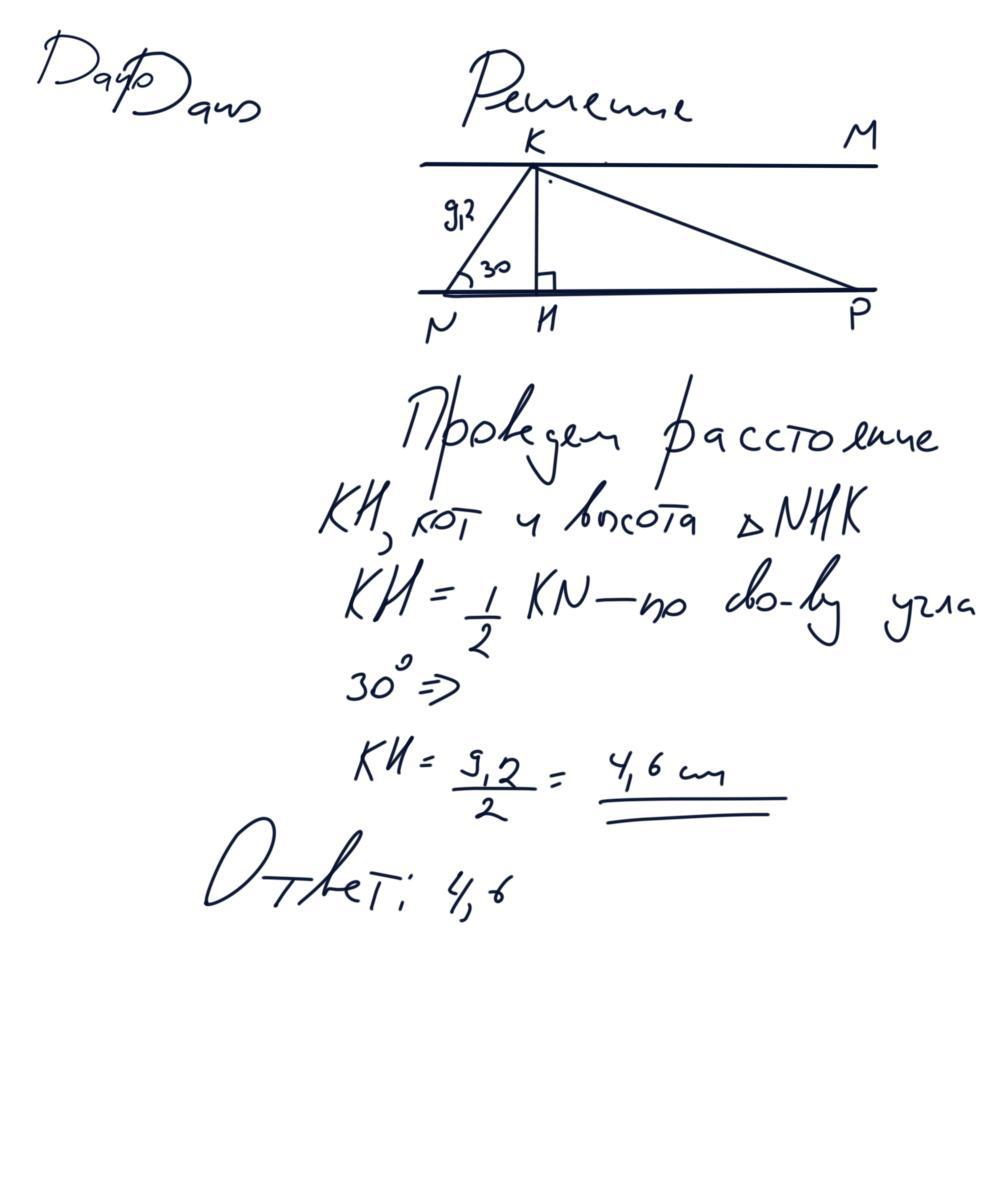 Дано Дано
Решение
K M
9,2
30
N H P
Проведем расстоение
KH, кот и высота △NHK
KH = 1/2 KN — по сво-ву угла
30° ⇒
KH = 9,2/2 = 4,6 см
Ответ: 4,6